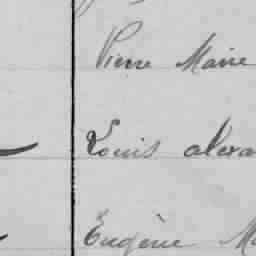 Pierre Marie
Louis alexa
Eugène Ma